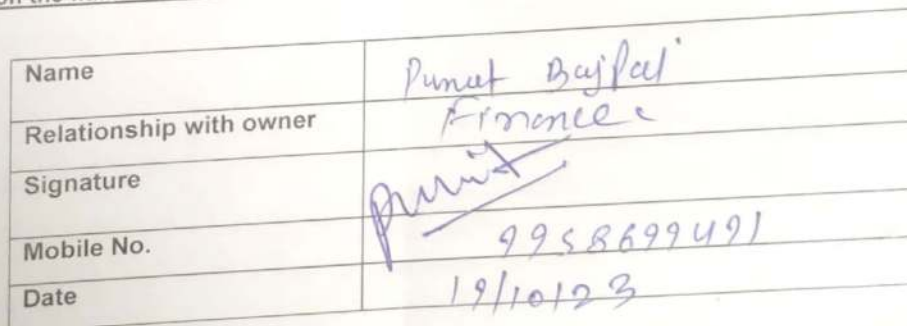 Name Puneet Bajpai
Relationship with owner Finance
Signature Punit
Mobile No. 9958699491
Date 19/10/23